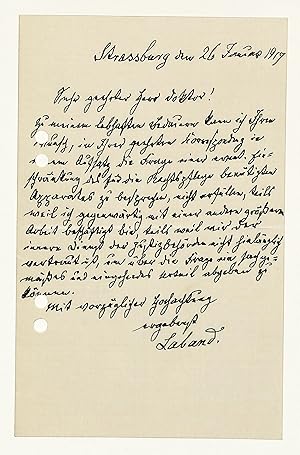 Strassburg den 26 Januar 1917
Sehr geehrter Herr Doktor!
Zu meinem lebhaften Bedauern kann ich Ihren
Wunsch, in Ihrer geschätzten Korrespondenz in
einem Aufsatz die Frage einer event. Ein-
schränkung des für die Rechtspflege benötigten
Apparates zu besprechen, nicht erfüllen, teils
weil ich gegenwärtig mit einer andern größeren
Arbeit beschäftigt bin, teils weil mir der
innere Dienst der Justizbehörden nicht hinlänglich
vertraut ist, um über die Frage ein sachge-
mäßes und eingehendes Urteil abgeben zu
können.
Mit vorzüglicher Hochachtung
ergebenst
Laband.